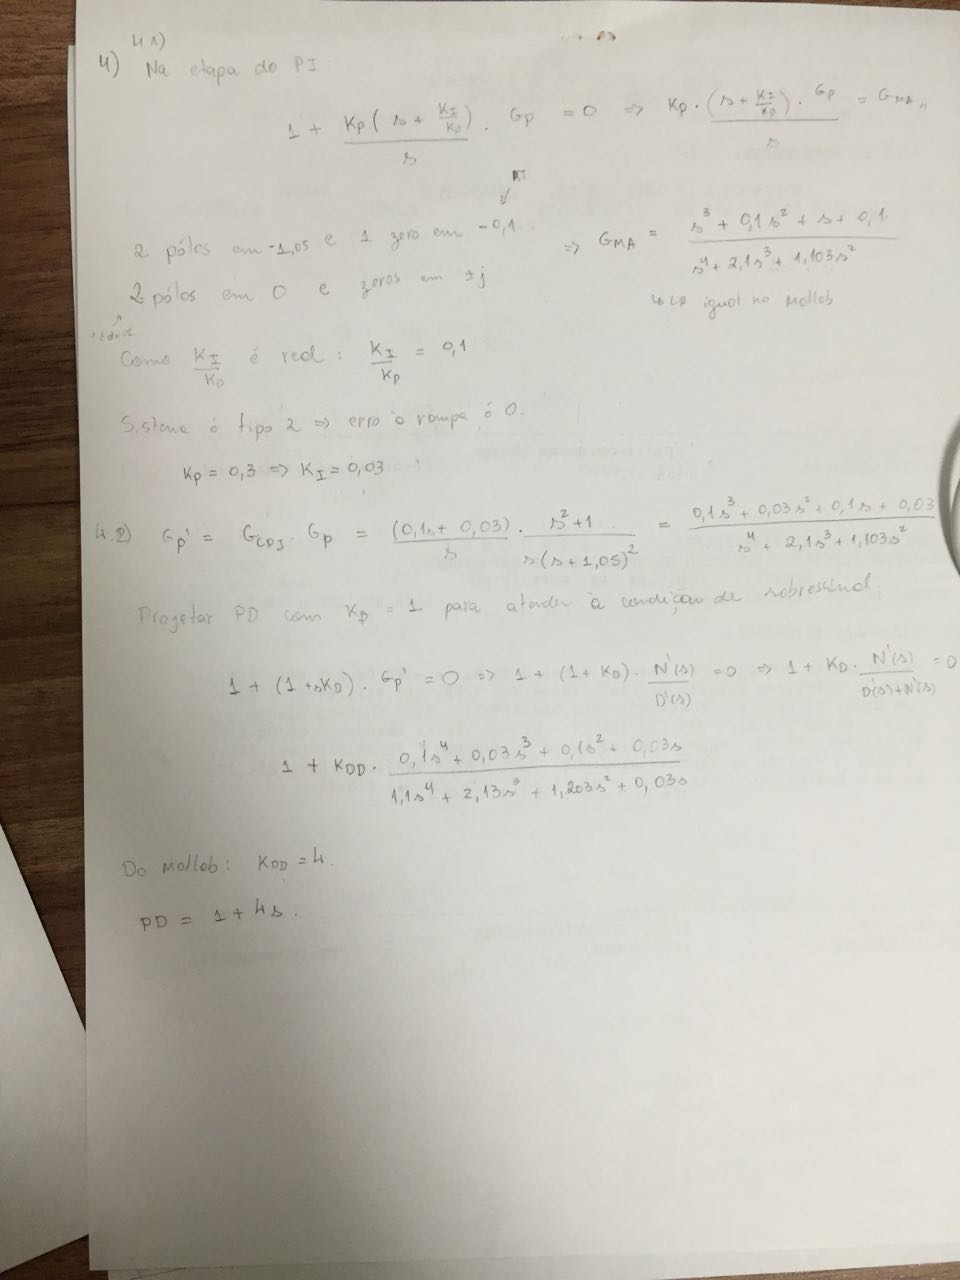 4.1)
4) Na etapa do PI:
1 + Kp(s + KI/Kp)/s · Gp = 0 ⇒ Kp · (s + KI/Kp) · Gp/s = GMA,,
2 pólos em -1,05 e 1 zero em -0,1 ⇒ GMA = (s³ + 0,1s² + s + 0,1)/(s⁴ + 2,1s³ + 1,103s²)
2 pólos em 0 e zeros em ±j
↳ LR igual no Matlab
Como KI/Kp é real: KI/Kp = 0,1
Sistema é tipo 2 ⇒ erro à rampa é 0.
Kp = 0,3 ⇒ KI = 0,03
4.2) Gp' = GCPI · Gp = (0,1s + 0,03)/s · (s²+1)/(s(s+1,05)²) = (0,1s³ + 0,03s² + 0,1s + 0,03)/(s⁴ + 2,1s³ + 1,103s²)
Projetar PD com Kp = 1 para atender à condição de sobressinal.
1 + (1+sKD) · Gp' = 0 ⇒ 1 + (1+KD) · N'(s)/D'(s) = 0 ⇒ 1 + KD · N'(s)/(D'(s)+N'(s)) = 0
1 + KDD · (0,1s⁴ + 0,03s³ + 0,1s² + 0,03s)/(1,1s⁴ + 2,13s³ + 1,203s² + 0,03s)
Do Matlab: KDD = 4.
PD = 1 + 4s.